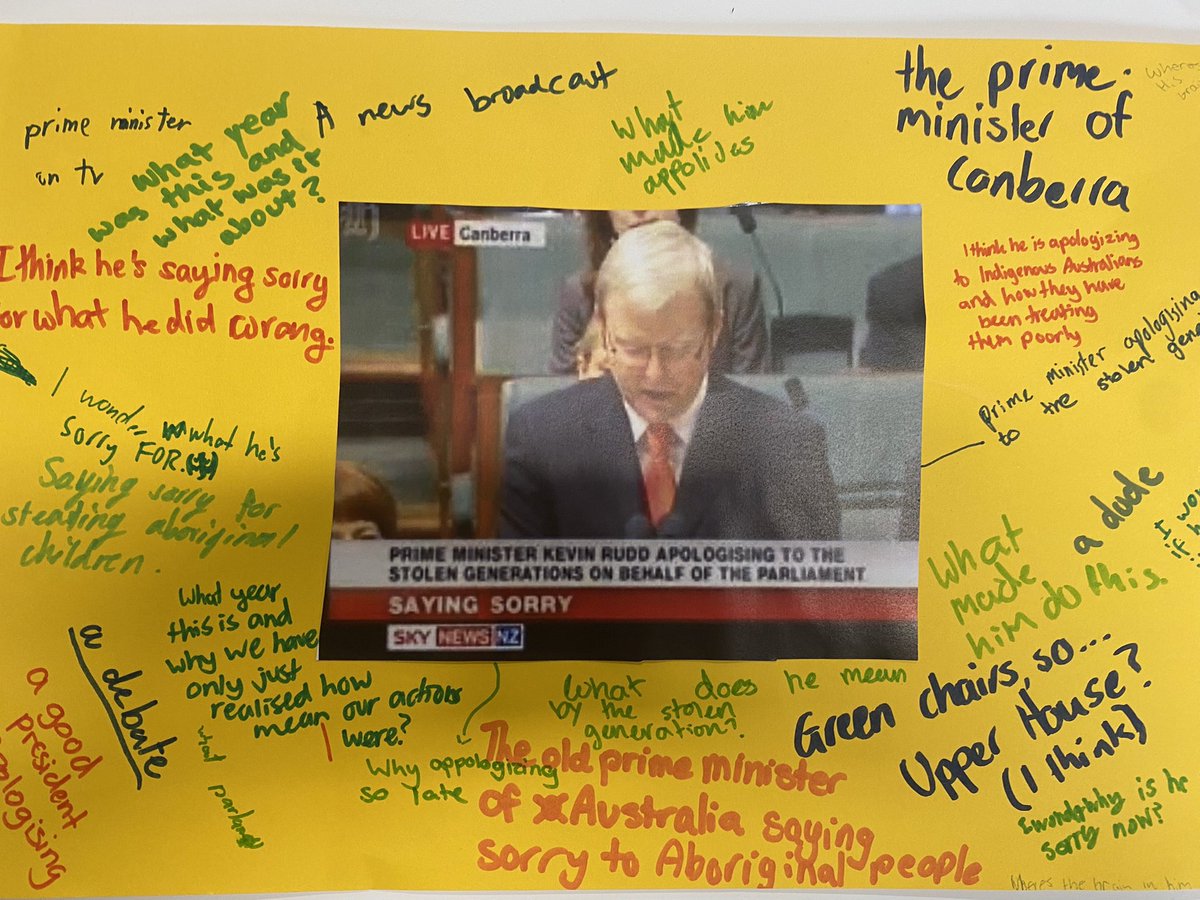 prime minister
on tv
what year
was this and
what was it
about?
A news broadcast
What
made him
appolides
the prime.
minister of
Canberra
Wheres
this
I think he's saying sorry
for what he did wrong.
LIVE Canberra
I think he is apologizing
to Indigenous Australians
and how they have
been treating
them poorly
prime minister apologising
to the stolen
I wonder what he's
sorry FOR.
Saying sorry for
stealing aboriginal
children.
PRIME MINISTER KEVIN RUDD APOLOGISING TO THE
STOLEN GENERATIONS ON BEHALF OF THE PARLIAMENT
SAYING SORRY
SKY NEWS NZ
a dude
What
made
him do this.
I
if
What year
this is and
why we have
only just
realised how
mean our actions
were?
a debate
a good
president
apologising
what
What does he mean
by the stolen
generation?
Why oppologizing
so late
The old prime minister
of Australia saying
sorry to Aboriginal people
Green chairs, so...
Upper House?
(I think)
I wonder why is he
sorry now?
Wheres the brain in him